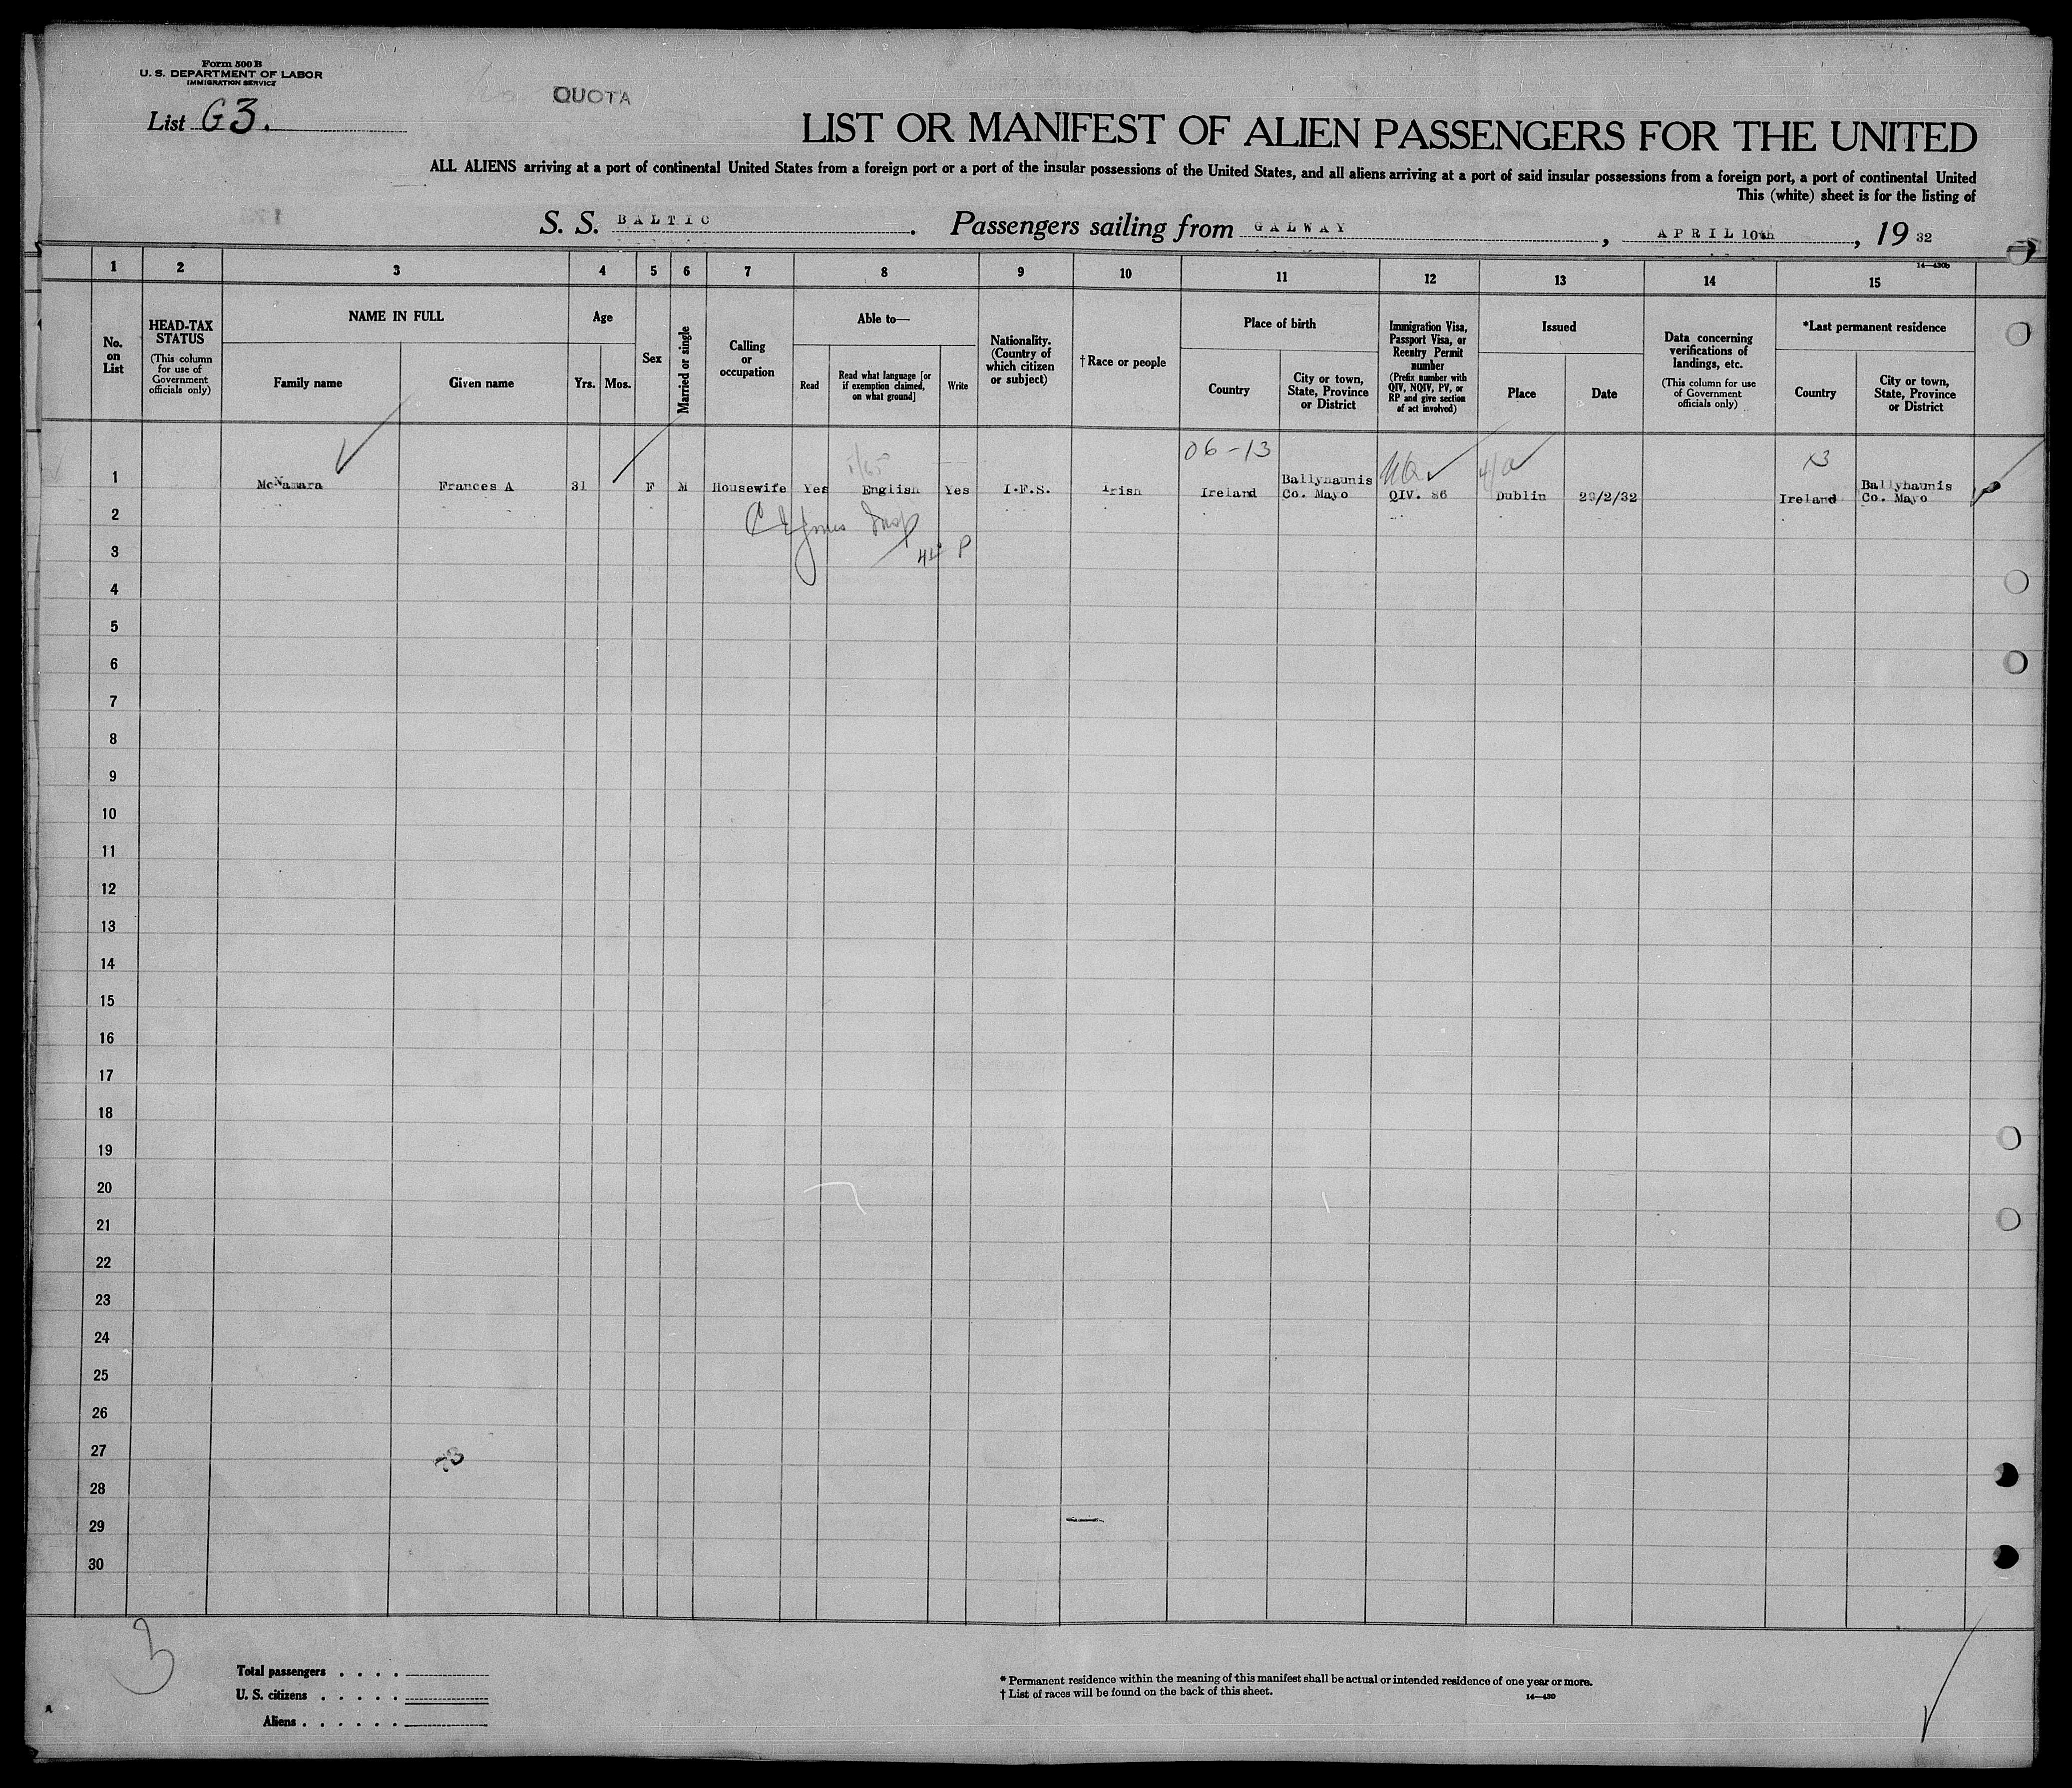 Form 500 B
U. S. DEPARTMENT OF LABOR
IMMIGRATION SERVICE
QUOTA
List G3.
LIST OR MANIFEST OF ALIEN PASSENGERS FOR THE UNITED
ALL ALIENS arriving at a port of continental United States from a foreign port or a port of the insular possessions of the United States, and all aliens arriving at a port of said insular possessions from a foreign port, a port of continental United
This (white) sheet is for the listing of
S. S. BALTIC. Passengers sailing from GALWAY, APRIL 10th, 19 32
14—430b
1 2 3 4 5 6 7 8 9 10 11 12 13 14 15
No. on List
HEAD-TAX STATUS
(This column for use of Government officials only)
NAME IN FULL
Family name
Given name
Age
Yrs.
Mos.
Sex
Married or single
Calling or occupation
Able to—
Read
Read what language [or if exemption claimed, on what ground]
Write
Nationality. (Country of which citizen or subject)
†Race or people
Place of birth
Country
City or town, State, Province or District
Immigration Visa, Passport Visa, or Reentry Permit number
(Prefix number with QIV, NQIV, PV, or RP and give section of act involved)
Issued
Place
Date
Data concerning verifications of landings, etc.
(This column for use of Government officials only)
*Last permanent residence
Country
City or town, State, Province or District
06-13
1 McNamara Frances A 31 F M Housewife Yes English Yes I.F.S. Irish Ireland Ballyhaunis Co. Mayo QIV. 86 Dublin 29/2/32 Ireland Ballyhaunis Co. Mayo
2
3 44 P
4
5
6
7
8
9
10
11
12
13
14
15
16
17
18
19
20
21
22
23
24
25
26
27
28
29
30
3
Total passengers . . . .
U. S. citizens . . . . .
Aliens . . . . . .
* Permanent residence within the meaning of this manifest shall be actual or intended residence of one year or more.
† List of races will be found on the back of this sheet.
14—430